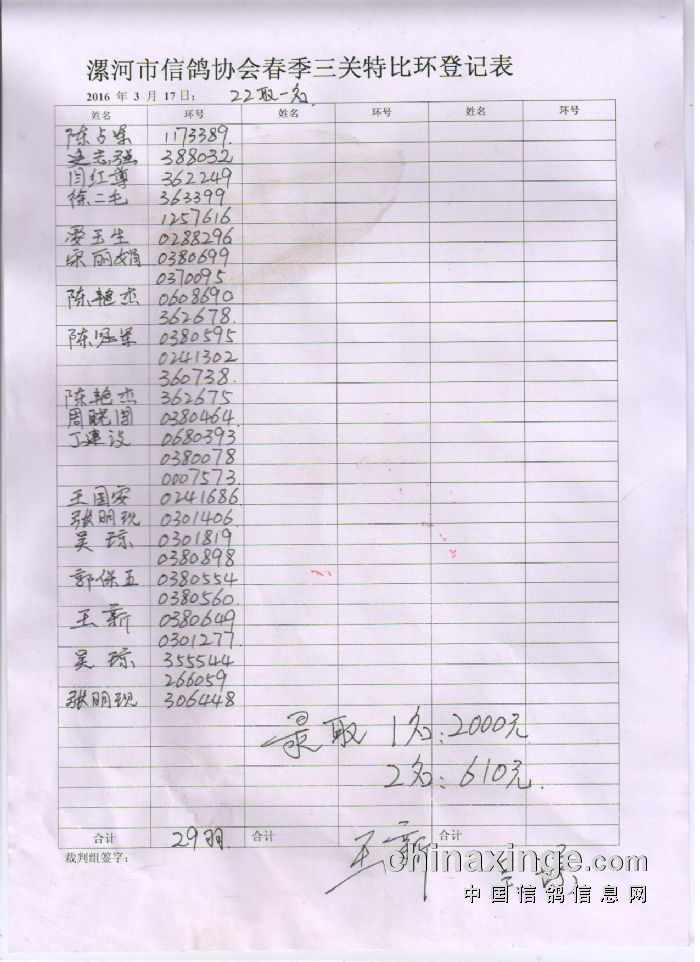 漯河市信鸽协会春季三关特比环登记表
2016 年 3 月 17 日: 22取一名
姓名 环号 姓名 环号 姓名 环号
陈占荣 1173389
连志强 388032
闫红尊 362249
徐二毛 363399
1257616
晏玉生 0288296
宋丽娟 0380699
0370095
陈艳杰 0608690
362678
陈 0380595
0241302
360738
陈艳杰 362675
周晓国 0380464
丁建设 0680393
0380078
0007573
王国安 0241686
张明现 0301406
吴琼 0301819
0380898
郭保五 0380554
0380560
王新 0380649
0301277
吴琼 355544
266059
张明现 306448
录取 1名:2000元
2名:610元
合计 29羽 合计 合计
裁判组签字: 王新
chinaxinge.com
中国信鸽信息网